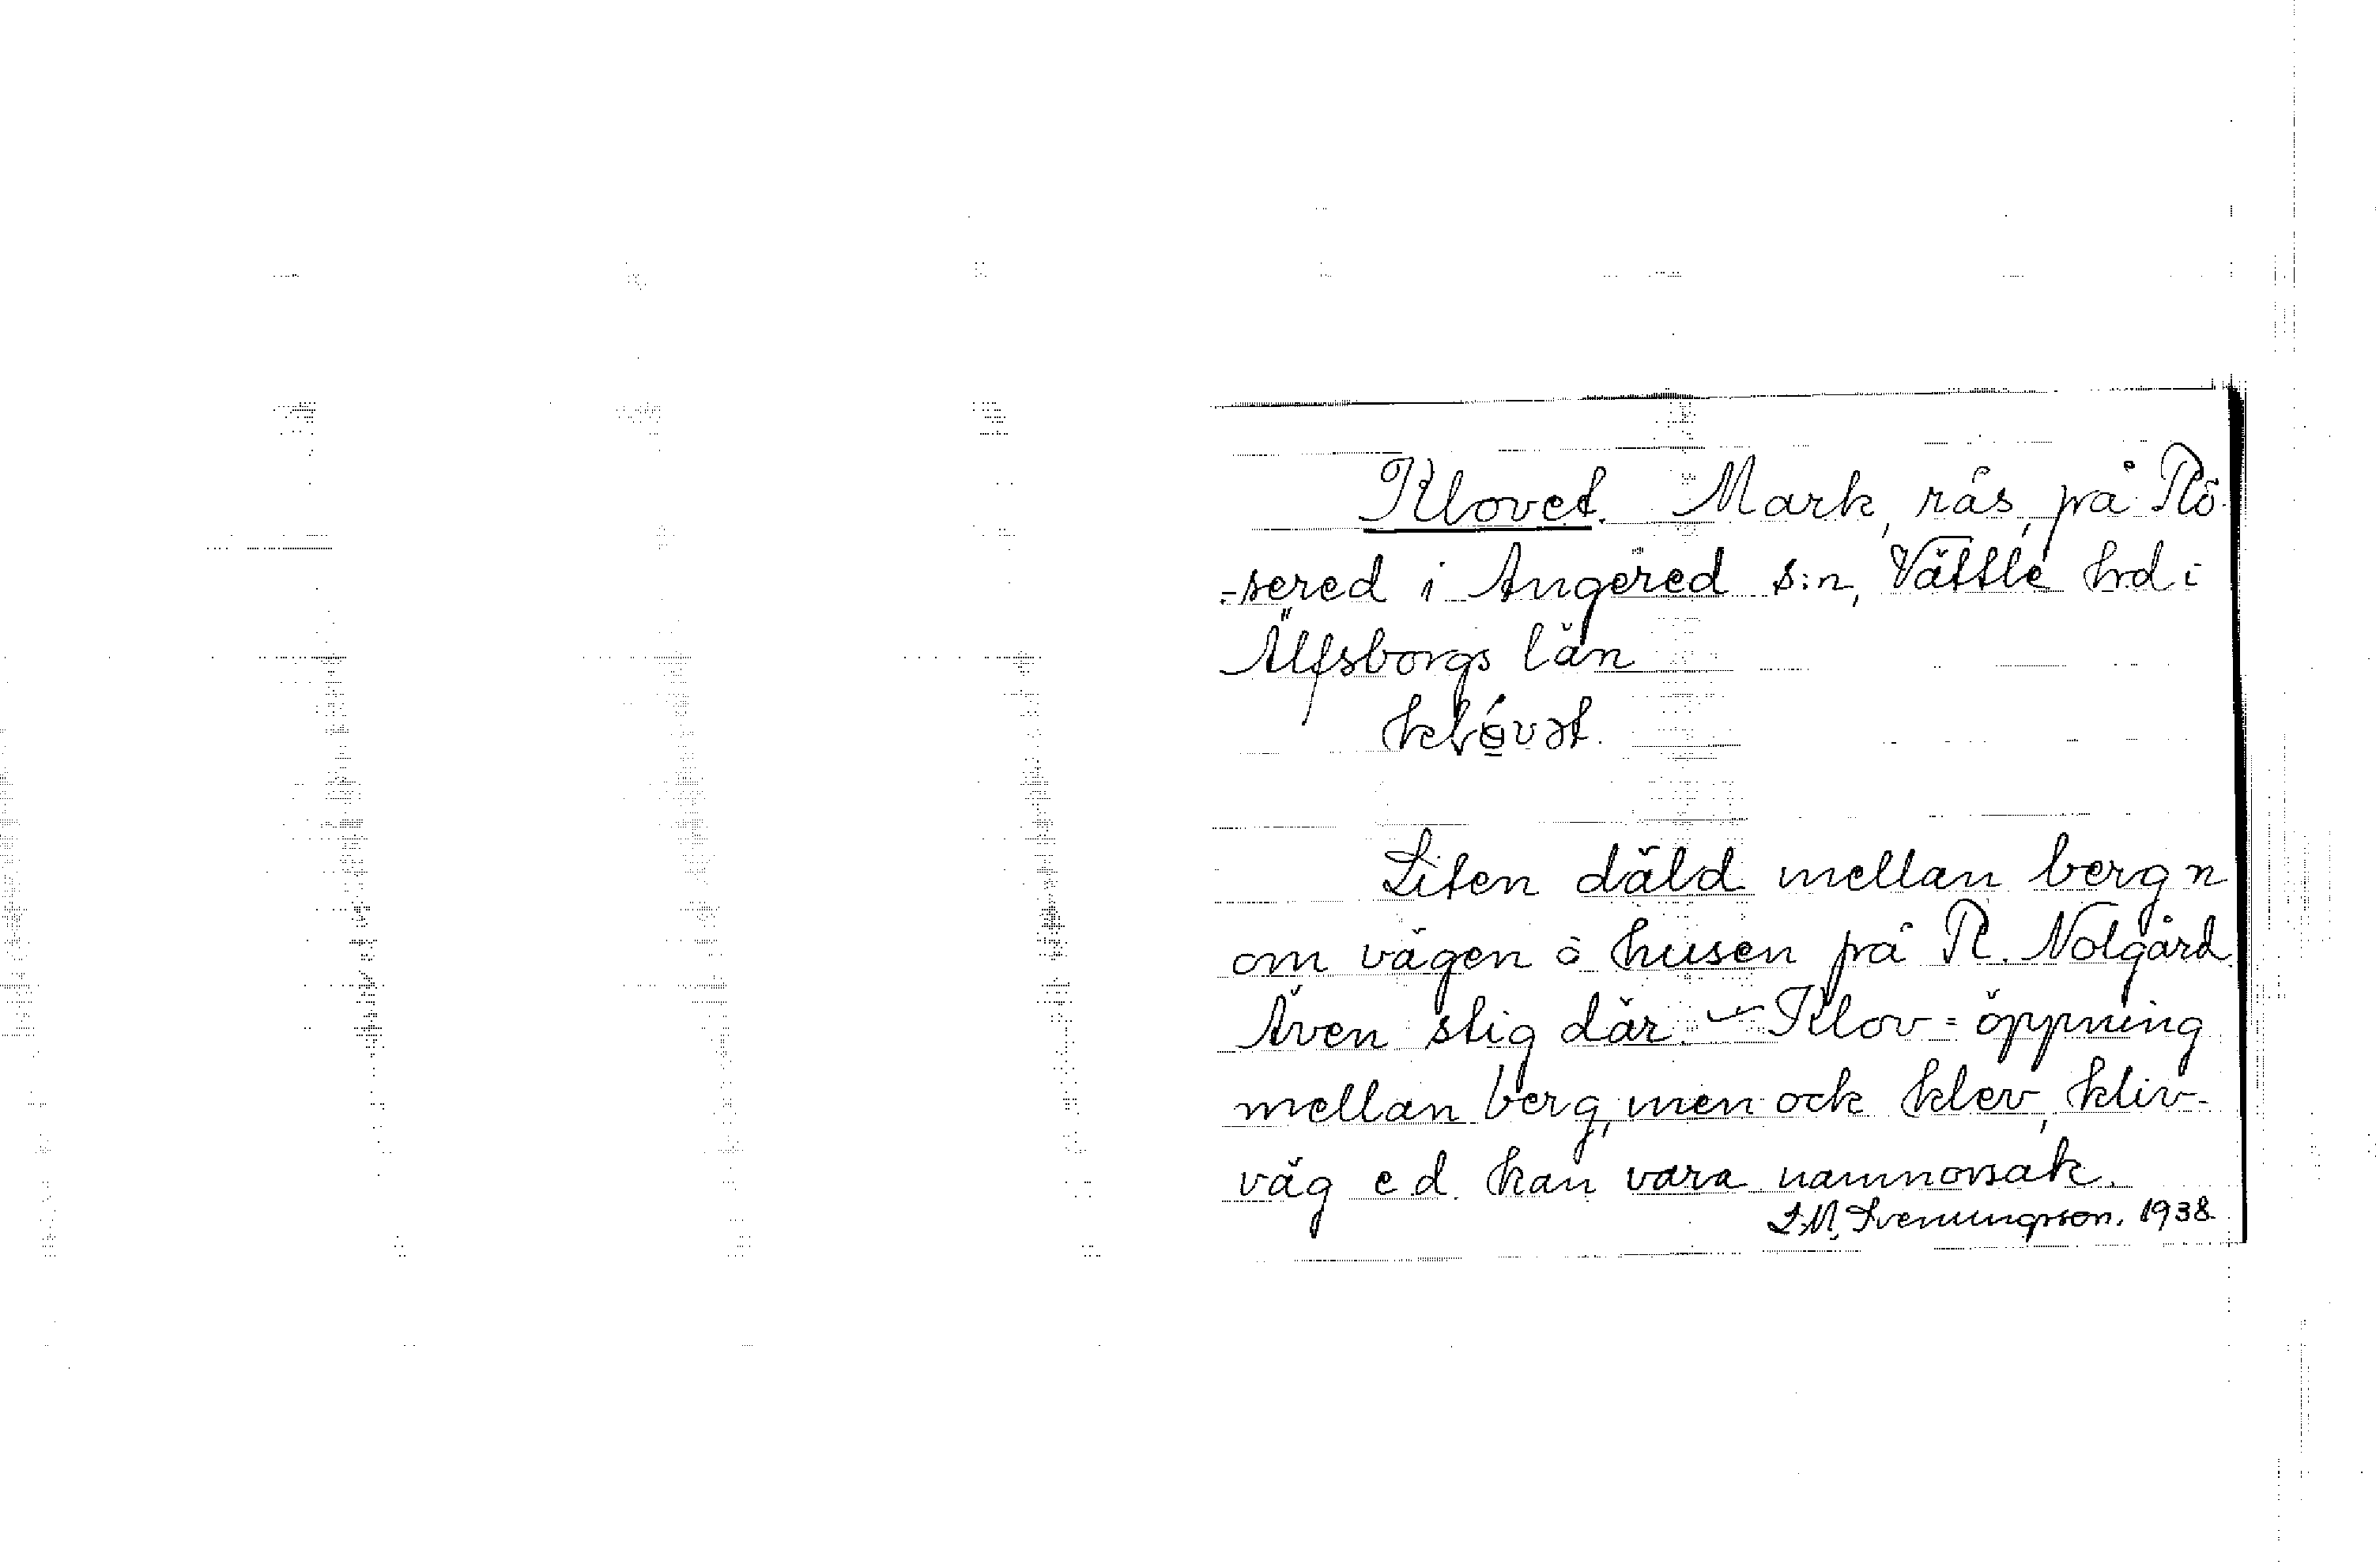 Klovet. Mark, rås, på Rö-
-sered i Angered s:n, Vättle hrd i
Älfsborgs län
Liten däld mellan berg n
om vägen o husen på R. Nolgård.
Även stig där. – Klov = öppning
mellan berg, men ock klev, kliv-
väg e.d. kan vara namnorsak.
S.M. Svenungsson. 1938.